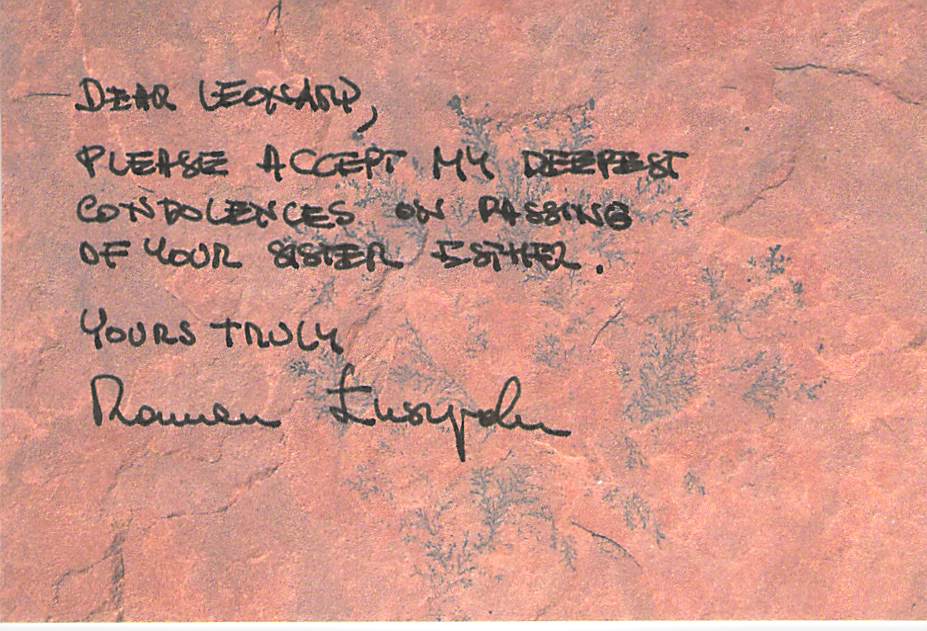 DEAR LEONARD,
PLEASE ACCEPT MY DEEPEST
CONDOLENCES ON PASSING
OF YOUR SISTER ESTHER.
YOURS TRULY